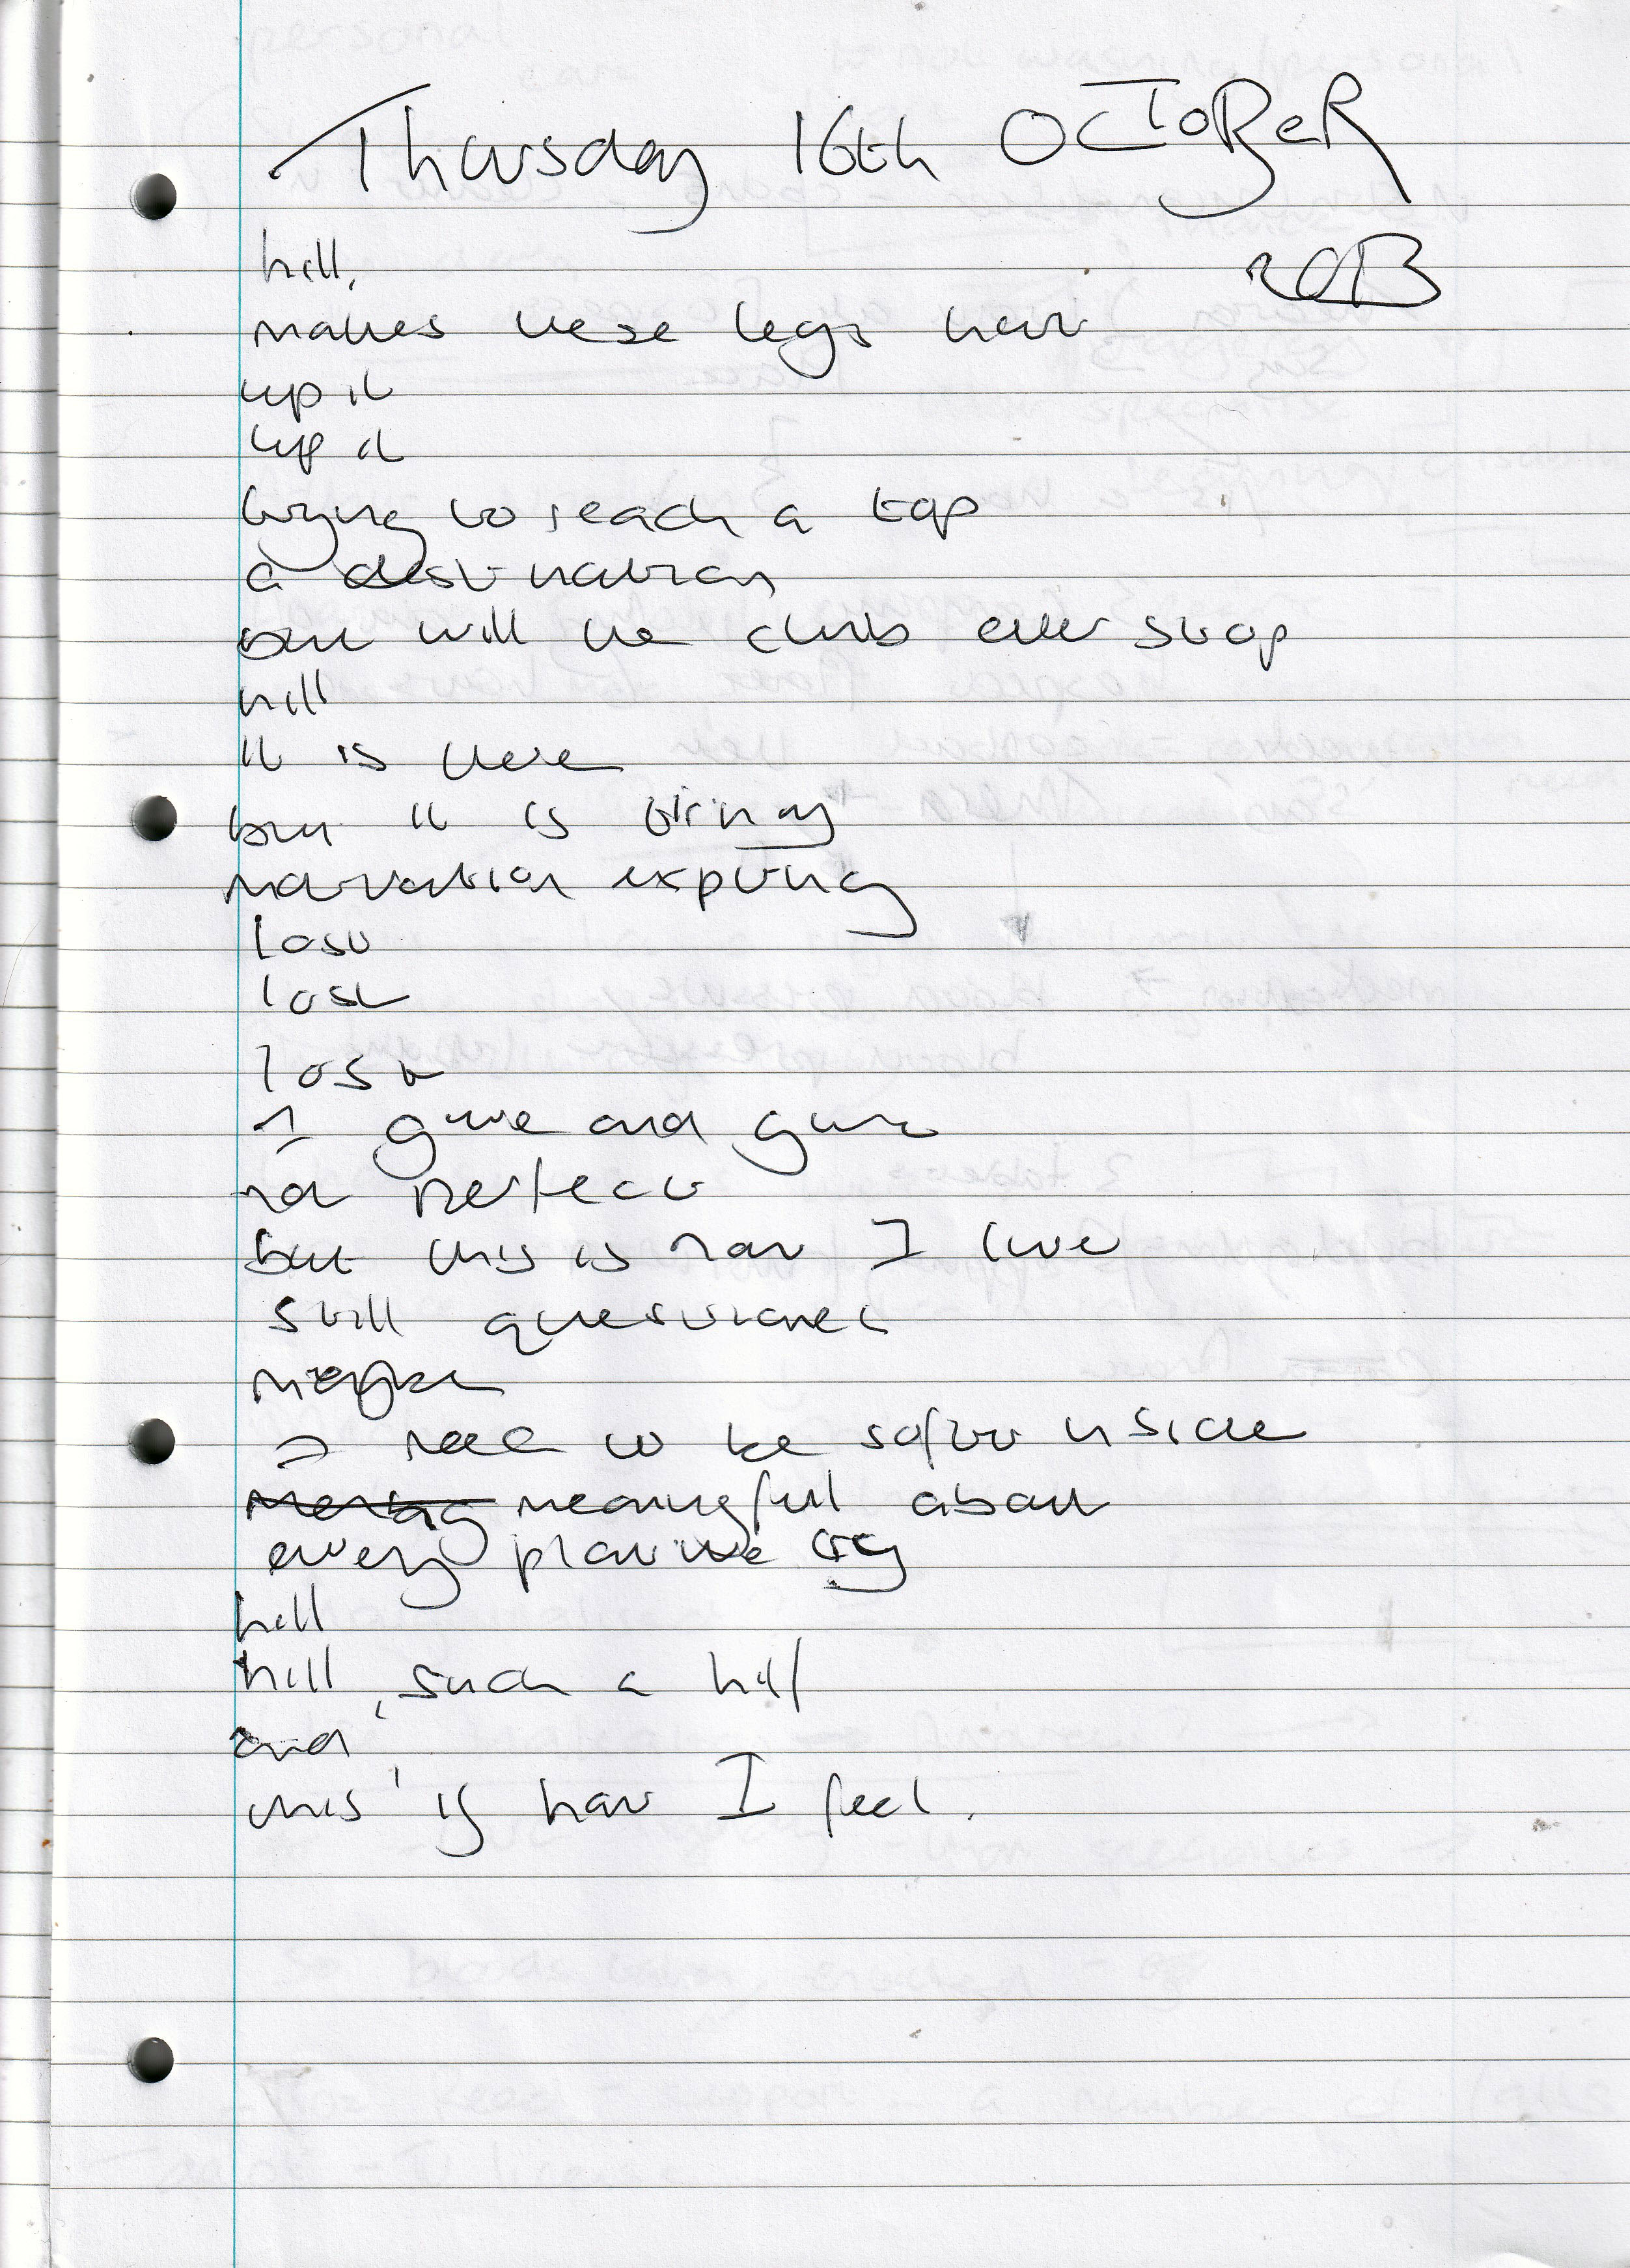 Thursday 16th OCTOBER
2013
hill,
makes these legs hurt
up it
up it
trying to reach a top
a destination
but will the climb ever stop
hill
it is there
but it is tiring
motivation expiring
lost
lost
lost
I give and give
not perfect
but this is how I live
still questioned
maybe
I need to be softer inside
meaningful about
every plan we
hill
hill, such a hill
and
this is how I feel.